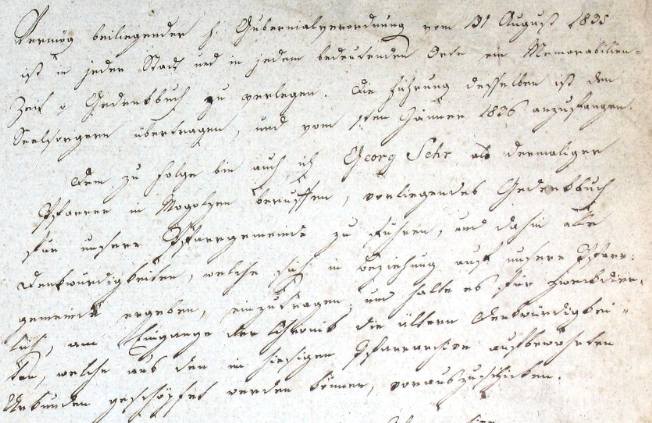 Vermög beiliegender h. Gubernialverordnung vom 31 August 1835
ist in jeder Stadt und in jedem bedeutenden Orte ein Memorabilien-
Zeit o Gedenkbuch zu verlegen. Die Führung desselben ist den
Seelsorgern übertragen, und vom 1ten Jänner 1836 anzufangen.
Dem zu folge bin auch ich Georg Sehr als dermaliger
Pfarrer in Mogolzen berufen, vorliegendes Gedenkbuch
für unsere Pfarrgemeinde zu führen, und dahin alle
Denkwürdigkeiten, welche sich in Beziehung auf unsere Pfarr-
gemeinde ergeben, einzutragen; und halte es für
lich, am Eingange der Chronik die ältern Denkwürdigkei-
ten, welche aus den im hiesigen Pfarrarchive aufbewahrten
Urkunden geschöpfet werden können, vorauszuschicken.